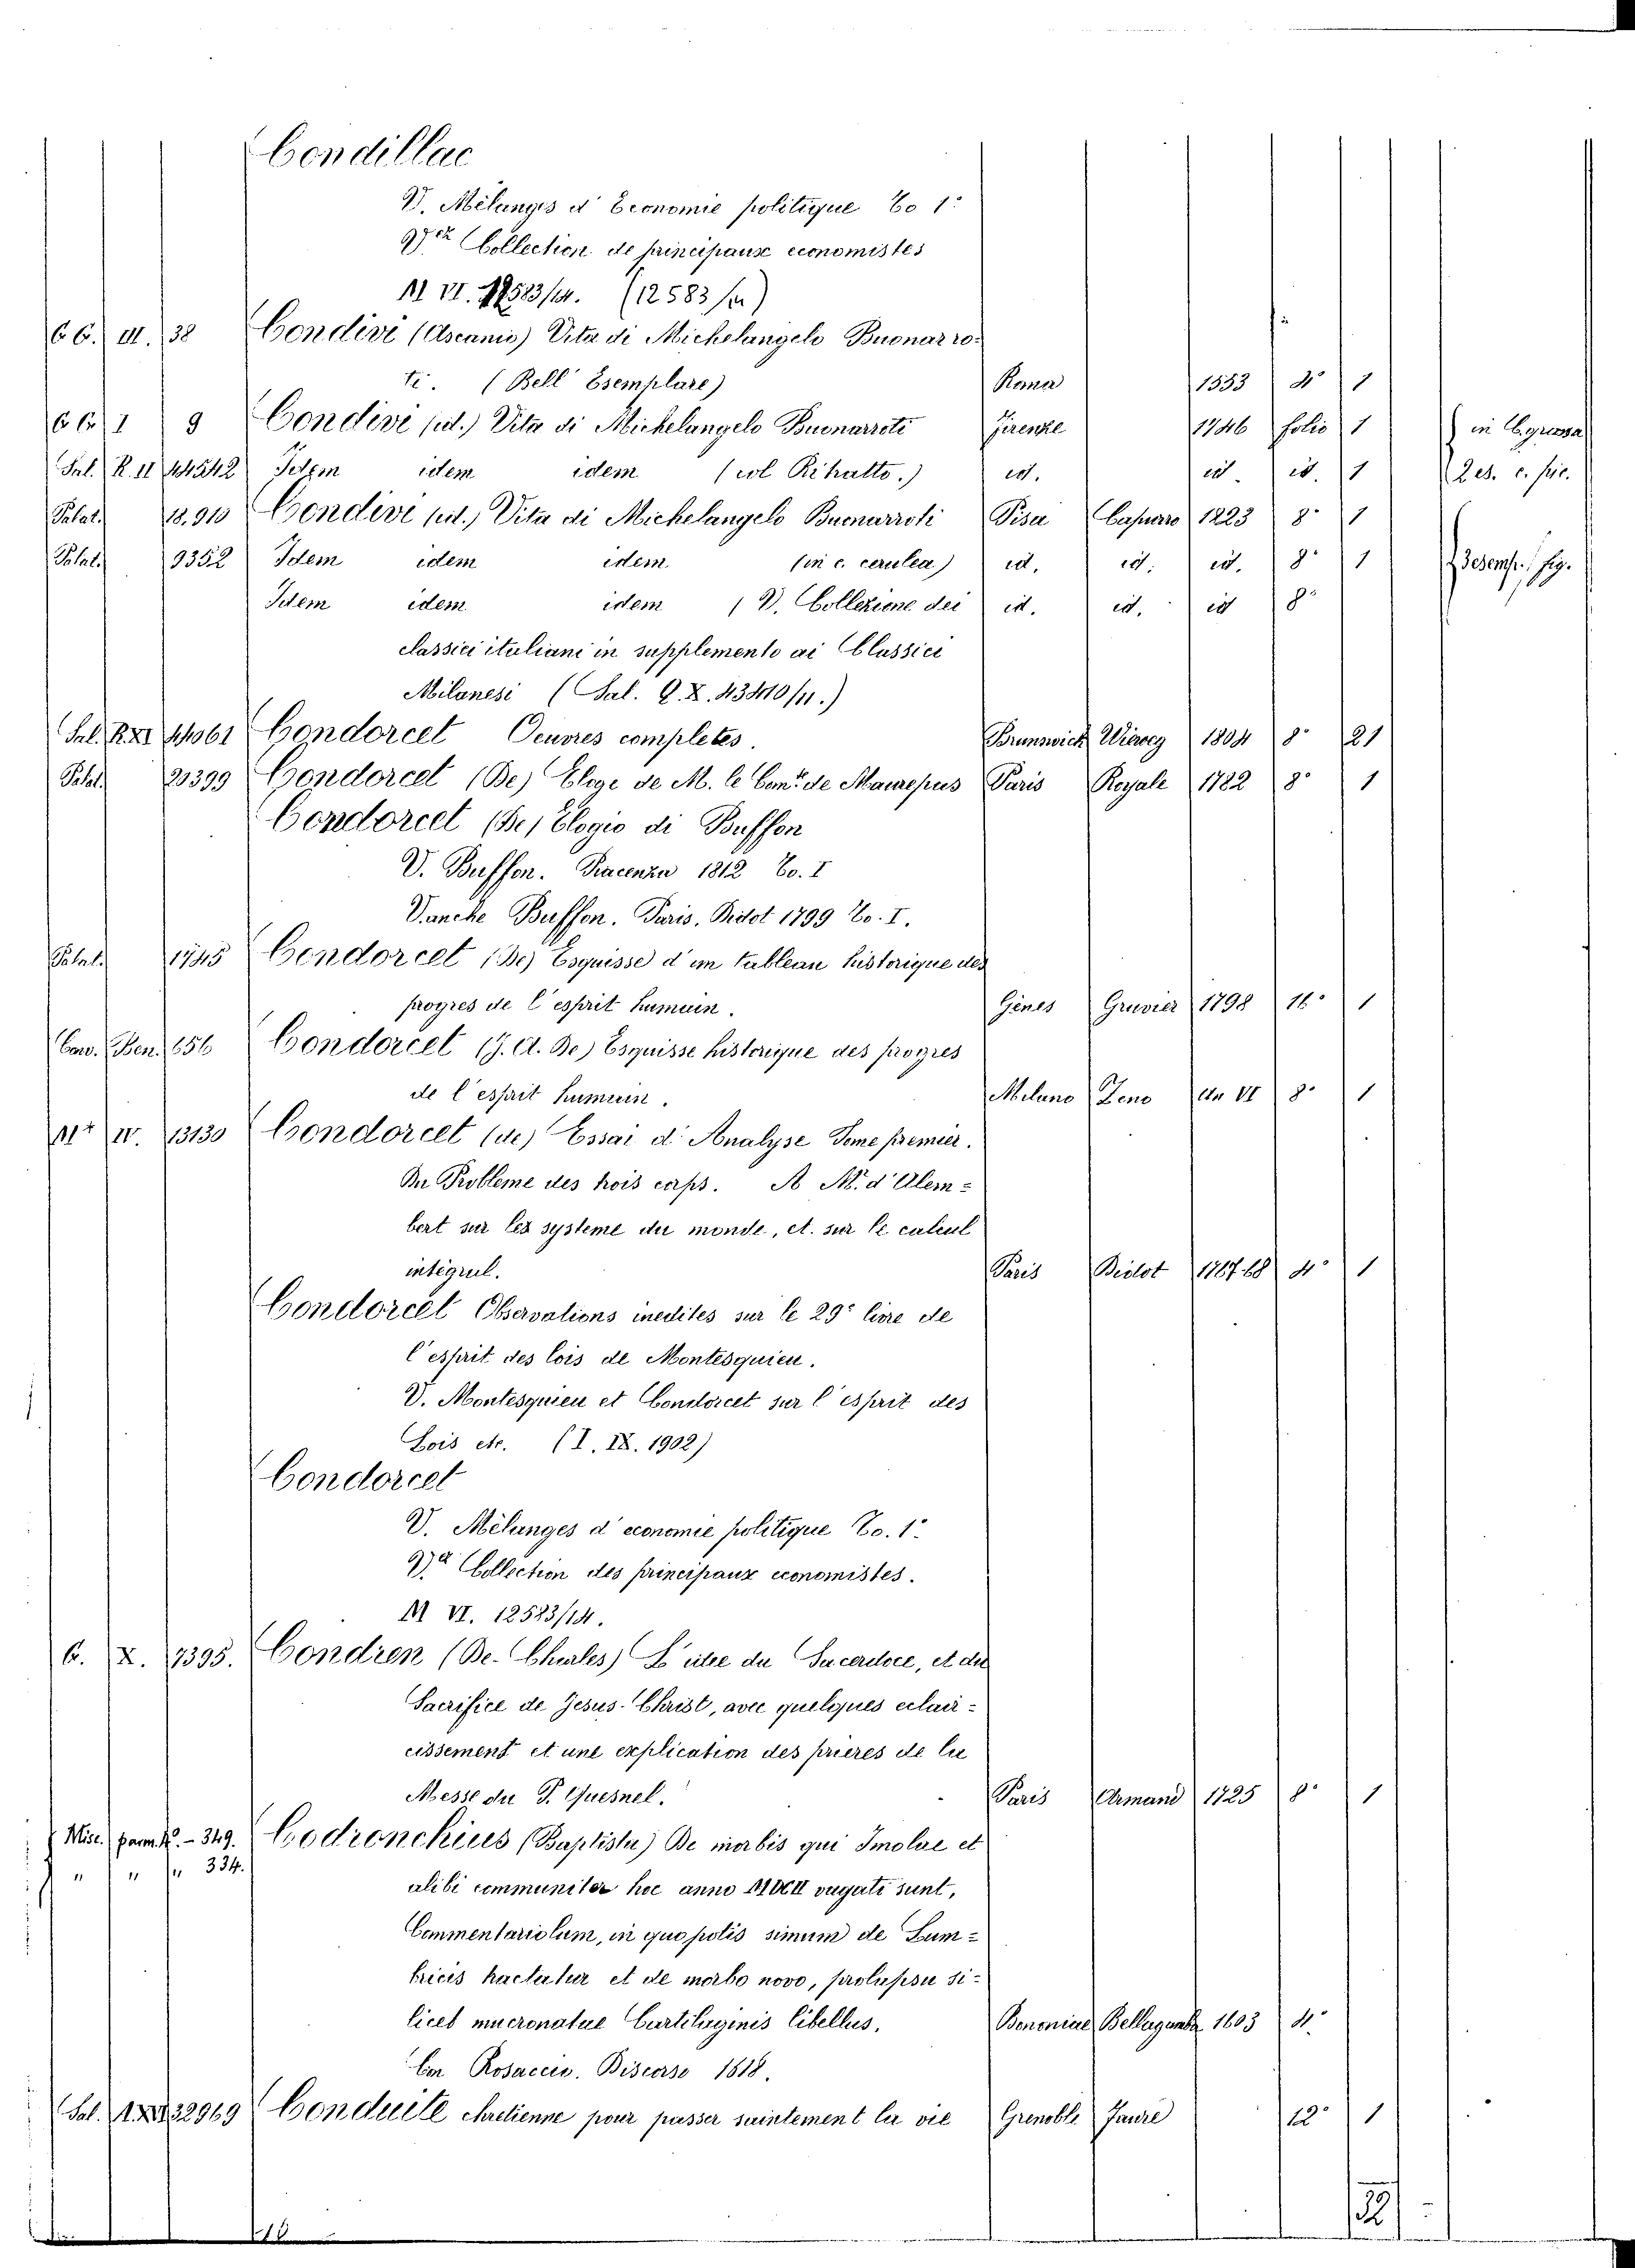 Condillac
V. Mélanges d'Economie politique To 1º
Collection de principaux economistes
M VI. 12583/14. (12583/14)
G G. III. 38 Condivi (Ascanio) Vita di Michelangelo Buonarro-
ti. (Bell' Esemplare) Roma 1553 4º 1
G G I 9 Condivi (id.) Vita di Michelangelo Buonarroti Firenze 1746 folio 1
Sal. R. II 44542 Idem idem idem (col Ritratto.) id. id. id. 1 Des. c. fic.
Palat. 18.910 Condivi (id.) Vita di Michelangelo Buonarroti Pisa Capurro 1823 8º 1
Palat. 9352 Idem idem idem (in c. cerulea) id. id. id. 8º 1
Idem idem idem (V. Collezione dei id. id. id 8º
classici italiani in supplemento ai Classici
Milanesi (Sal. Q. X. 43410/11.)
Sal. R. XI 44061 Condorcet Oeuvres completes. Brunswick Vieweg 1804 8º 21
Palat. 20399 Condorcet (De) Eloge de M. le Com.te de Maurepas Paris Royale 1782 8º 1
Condorcet (De) Elogio di Buffon
V. Buffon. Piacenza 1812 To. I
V. anche Buffon. Paris. Didot 1799 To. I.
Palat. 1745 Condorcet (De) Esquisse d'un tableau historique des
progres de l'esprit humain. Gènes Gravier 1798 16º 1
Cav. Ben. 656 Condorcet (J. A. De) Esquisse historique des progres
de l'esprit humain. Milano Zeno An VI 8º 1
IV. 13130 Condorcet (de) Essai d'Analyse Tome premier.
Du Probleme des trois corps. A M. d'Alem-
bert sur les systeme du monde, et sur le calcul
intégral. Paris Didot 1767-68 4º 1
Condorcet Observations inedites sur le 29º livre de
l'esprit des lois de Montesquieu.
V. Montesquieu et Condorcet sur l'esprit des
Lois etc. (I. IX. 1902)
Condorcet
V. Mélanges d'economie politique To. 1º
Collection des principaux economistes.
M VI. 12583/14.
G. X. 7395. Condren (De. Charles) L'idée du Sacerdoce, et du
Sacrifice de Jesus-Christ, avec quelques eclair-
cissement et une explication des prieres de la
Messe du P. Quesnel. Paris Armand 1725 8º 1
Misc. parm. 4º. - 349. Codronchius (Baptista) De morbis qui Imolae et
" " " 334.
alibi communiter hoc anno MDCII vagati sunt,
Commentariolum, in quo potis simum de Lum-
bricis tractatur et de morbo novo, prolapsu si-
licet mucronatae Cartilaginis libellus. Bononiae Bellagamba 1603 4º
Con Rosaccio. Discorso 1618.
Sal. 32969 Conduite chretienne pour passer saintement la vie Grenoble Faure 12º 1
32